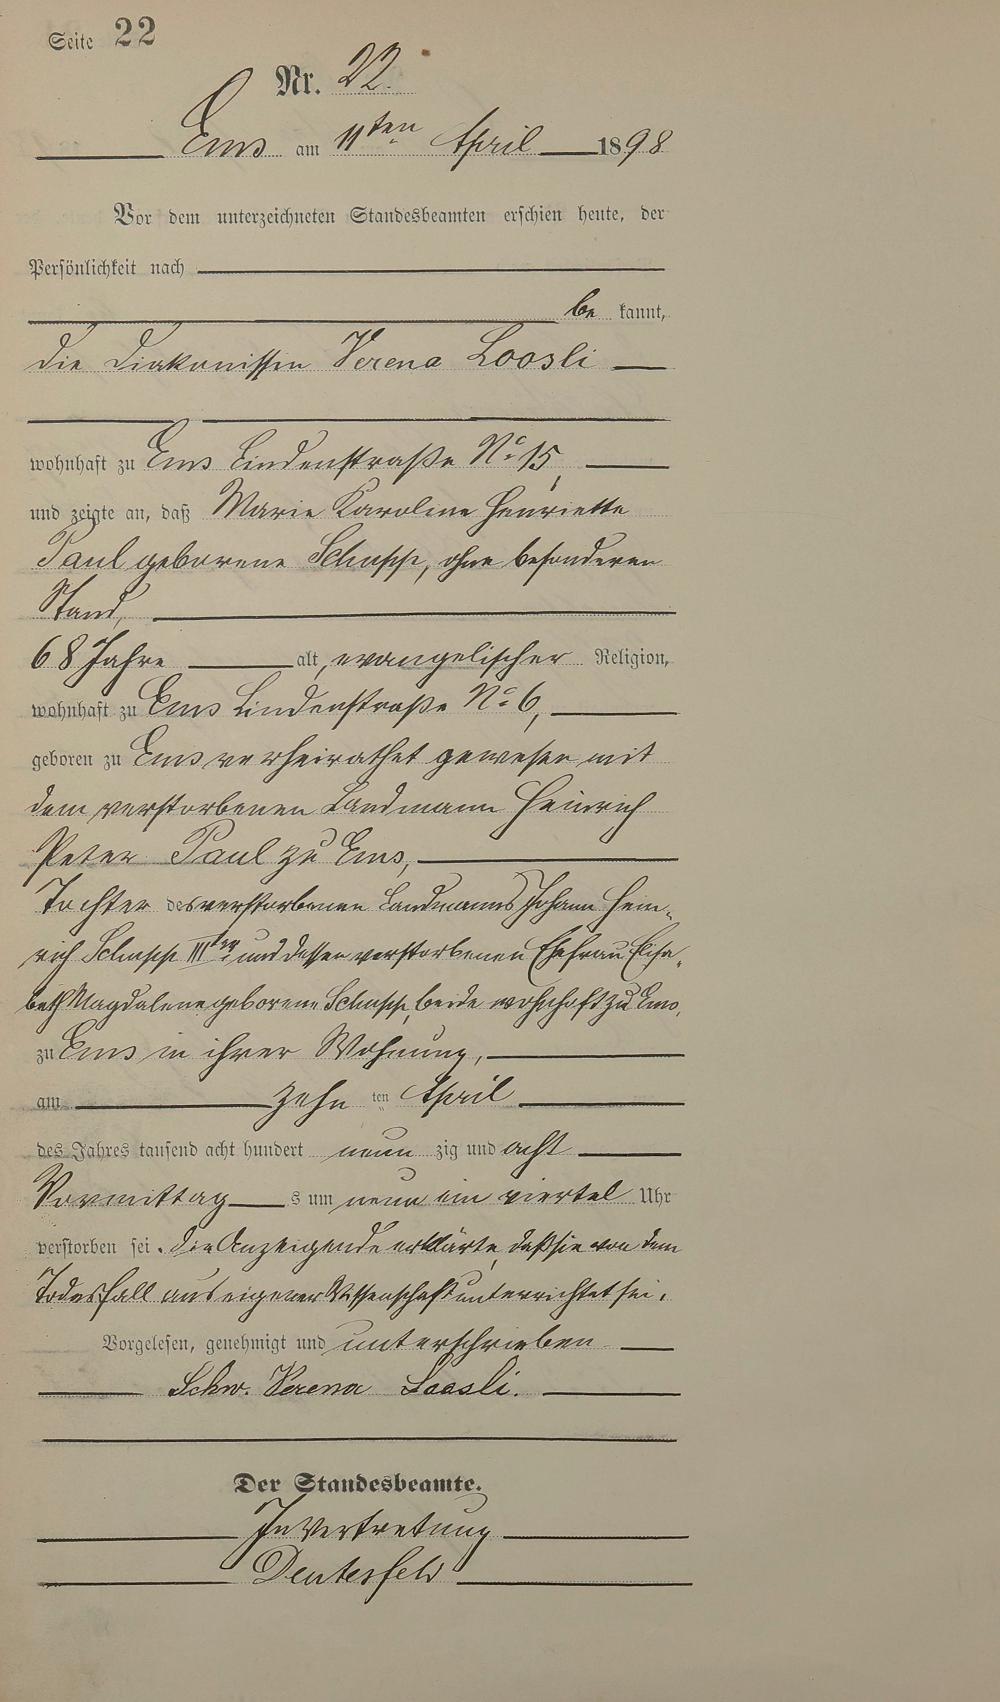 Seite 22
Nr. 22.
Ems am 11ten April 1898
Vor dem unterzeichneten Standesbeamten erschien heute, der
Persönlichkeit nach
be kannt,
die Diakonissen Verena Loosli
wohnhaft zu Ems Lindenstraße No 15,
und zeigte an, daß Marie Karoline Henriette
Paul geborene Schupp, ohne besonderen
Stand,
68 Jahre alt, evangelischer Religion,
wohnhaft zu Ems Lindenstraße No 6,
geboren zu Ems verheirathet gewesen mit
dem verstorbenen Landmann Heinrich
Peter Paul zu Ems,
Tochter des verstorbenen Landmanns Johann Hein-
rich Schupp IIIter und dessen verstorbenen Ehefrau Elisa-
beth Magdalene geborene Schupp, beide wohnhaft zu Ems,
zu Ems in ihrer Wohnung,
am zehn ten April
des Jahres tausend acht hundert neun zig und acht
Vormittag s um neun ein viertel Uhr
verstorben sei. Die Anzeigende erklärte, daß sie von dem
Todesfall aus eigener Wissenschaft unterrichtet sei.
Vorgelesen, genehmigt und unterschrieben
Schw. Verena Loosli.
Der Standesbeamte.
In Vertretung